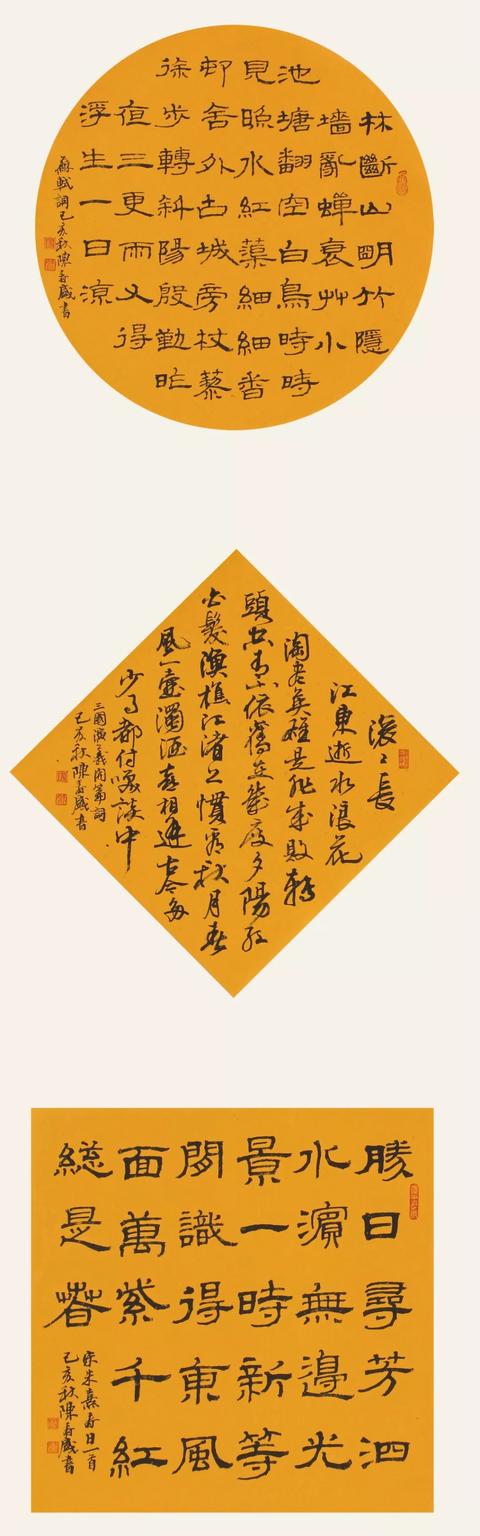 林斷山明竹隱
墻亂蟬衰艸小
池塘翻空白鳥時時
見照水紅蕖細細香
邨舍外古城旁杖藜
徐步轉斜陽殷勤昨
夜三更雨又得
浮生一日涼
蘇軾詞己亥秋陳春盛書
滾〻長
江東逝水浪花
淘尽英雄是非成敗轉
頭空青山依舊在幾度夕陽紅
白髮漁樵江渚上慣看秋月春
風一壺濁酒喜相逢古今多
少事都付笑談中
三國演義開篇詞
己亥秋陳春盛書
勝日尋芳泗
水濱無邊光
景一時新等
閒識得東風
面萬紫千紅
總是春
宋朱熹春日一首
己亥秋陳春盛書